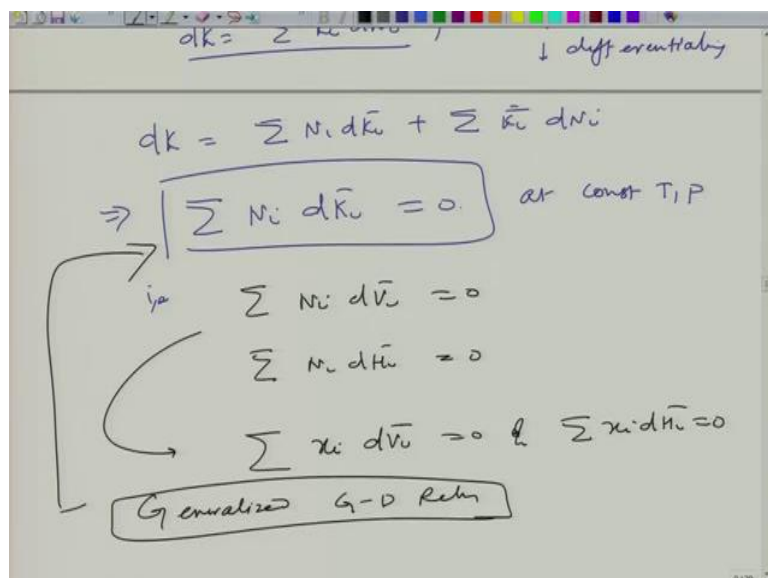 dK = Σ
↓ differentiating
dK = Σ Ni dK̄i + Σ K̄i dNi
⇒ Σ Ni dK̄i = 0. at const T, P
i,e Σ Ni dV̄i = 0
Σ Ni dH̄i = 0
Σ xi dV̄i = 0 & Σ xi dH̄i = 0
Generalized G-D Reln